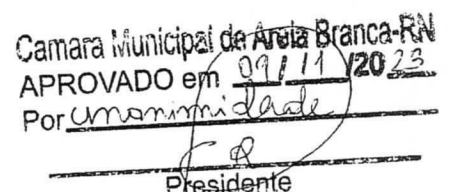 Camara Municipal de Areia Branca-RN
APROVADO em 09/11/2023
Por unanimidade
Presidente